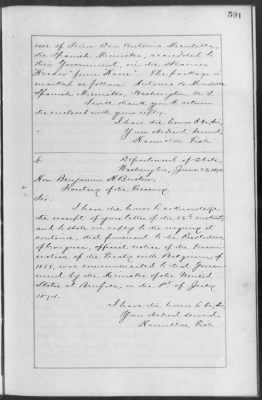 591
use of Señor Don Antonio Mantilla,
the Spanish Minister, accredited to
this Government, in the Steamer
"from Havre". The package is
marked as follows: Antonio de Mantilla
Spanish Minister, Washington, U.S.
I will thank you to return
the enclosed with your reply.
I have the honor to be, Sir,
Your obedient servant,
Hamilton Fish
Department of State,
Washington, June
Hon. Benjamin H. Bristow,
Secretary of the Treasury.
Sir:
I have the honor to acknowledge
the receipt of your letter of the instant,
and to state in reply to the inquiry it
contains, that pursuant to the Resolution
of Congress, official notice of the termi-
nation of the Treaty with Belgium of
1858, was communicated to that Govern-
ment by the Minister of the United
States at Brussels, on the 1st of July
1874.
I have the honor to be, Sir,
Your obedient servant
Hamilton Fish